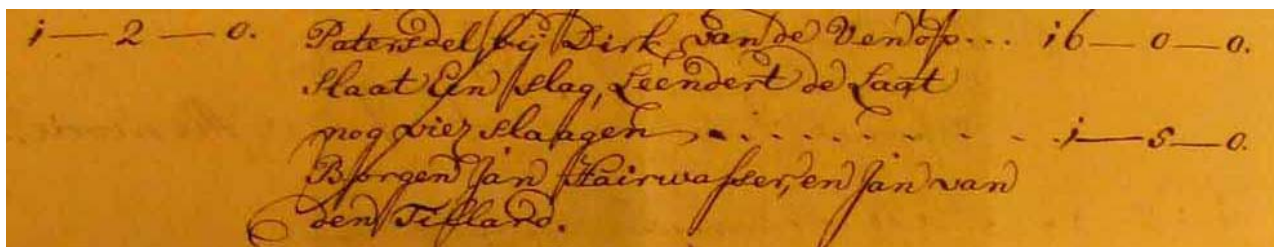 1 — 2 — 0. Patersdel, bij Dirk van de Ven op... 16 — 0 — 0.
slaat Een slag, Leendert de Laat
nog vier slaagen . . . . . . . . . . 1 — 5 — 0.
Borgen Jan Hairwasser, en Jan van
den Tilland.